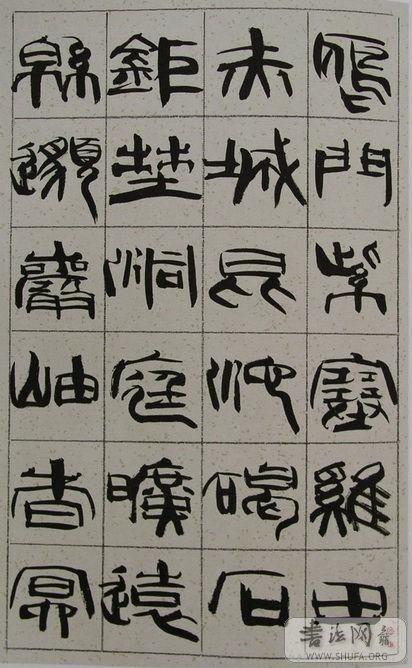 鴈門紫塞雞田
赤城昆池碣石
鉅野洞庭曠遠
緜邈巖岫杳冥
書法网
WWW.SHUFA.ORG